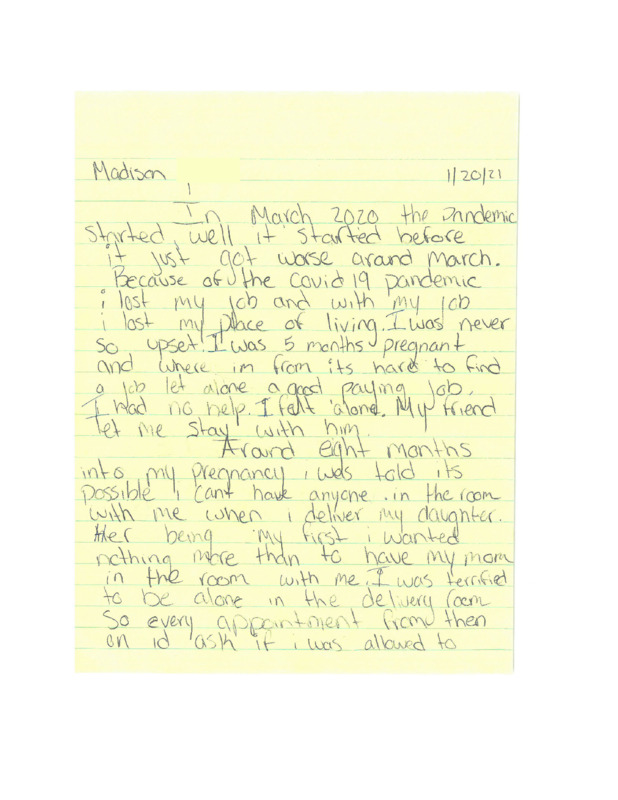 Madison 1/20/21
In March 2020 the pandemic
started, well it started before
it just got worse around march.
Because of the Covid 19 pandemic
i lost my job and with my job
i lost my place of living. I was never
so upset. I was 5 months pregnant
and where im from its hard to find
a job let alone a good paying job.
I had no help. I felt alone. My friend
let me stay with him.
Around eight months
into my pregnancy i was told its
possible i cant have anyone in the room
with me when i deliver my daughter.
Her being my first i wanted
nothing more than to have my mom
in the room with me. I was terrified
to be alone in the delivery room
So every appointment from then
on id ask if i was allowed to